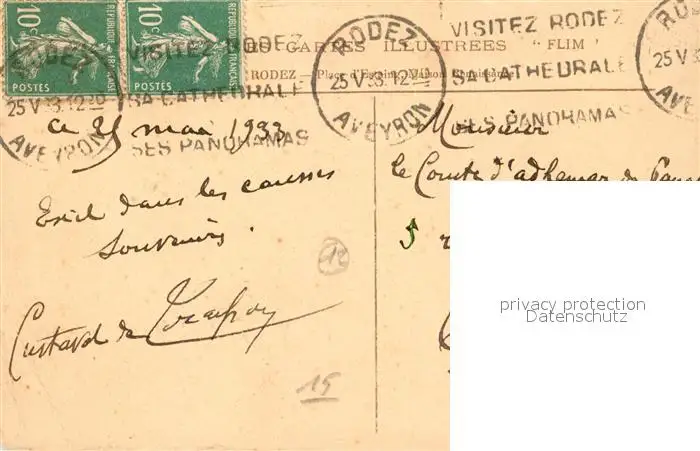 10c
POSTES
RÉPUBLIQUE FRANÇAISE
10c
POSTES
RÉPUBLIQUE FRANÇAISE
RODEZ
25 V 33. 12 20
AVEYRON
VISITEZ RODEZ
SA CATHEDRALE
SES PANORAMAS
RODEZ
25 V 33. 12 20
AVEYRON
VISITEZ RODEZ
SA CATHEDRALE
SES PANORAMAS
25 V
CARTES ILLUSTREES "FLIM"
RODEZ — Place d'Estaing, Maison Renaissance
ce 25 mai 1933
Exil dans les causses
Souvenirs.
de
12
15
Monsieur
le Comte d'adhemar de
5
privacy protection
Datenschutz